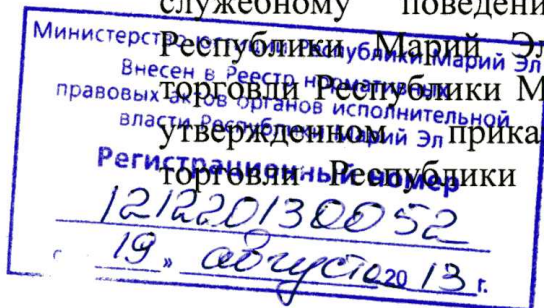 служебному поведени
Республики Марий Эл
торговли Республики М
утвержденном прика
торговли Республики
Министерство юстиции Республики Марий Эл
Внесен в Реестр нормативных
правовых актов органов исполнительной
власти Республики Марий Эл
Регистрационный номер
121220130052
« 19 » августа 20 13 г.